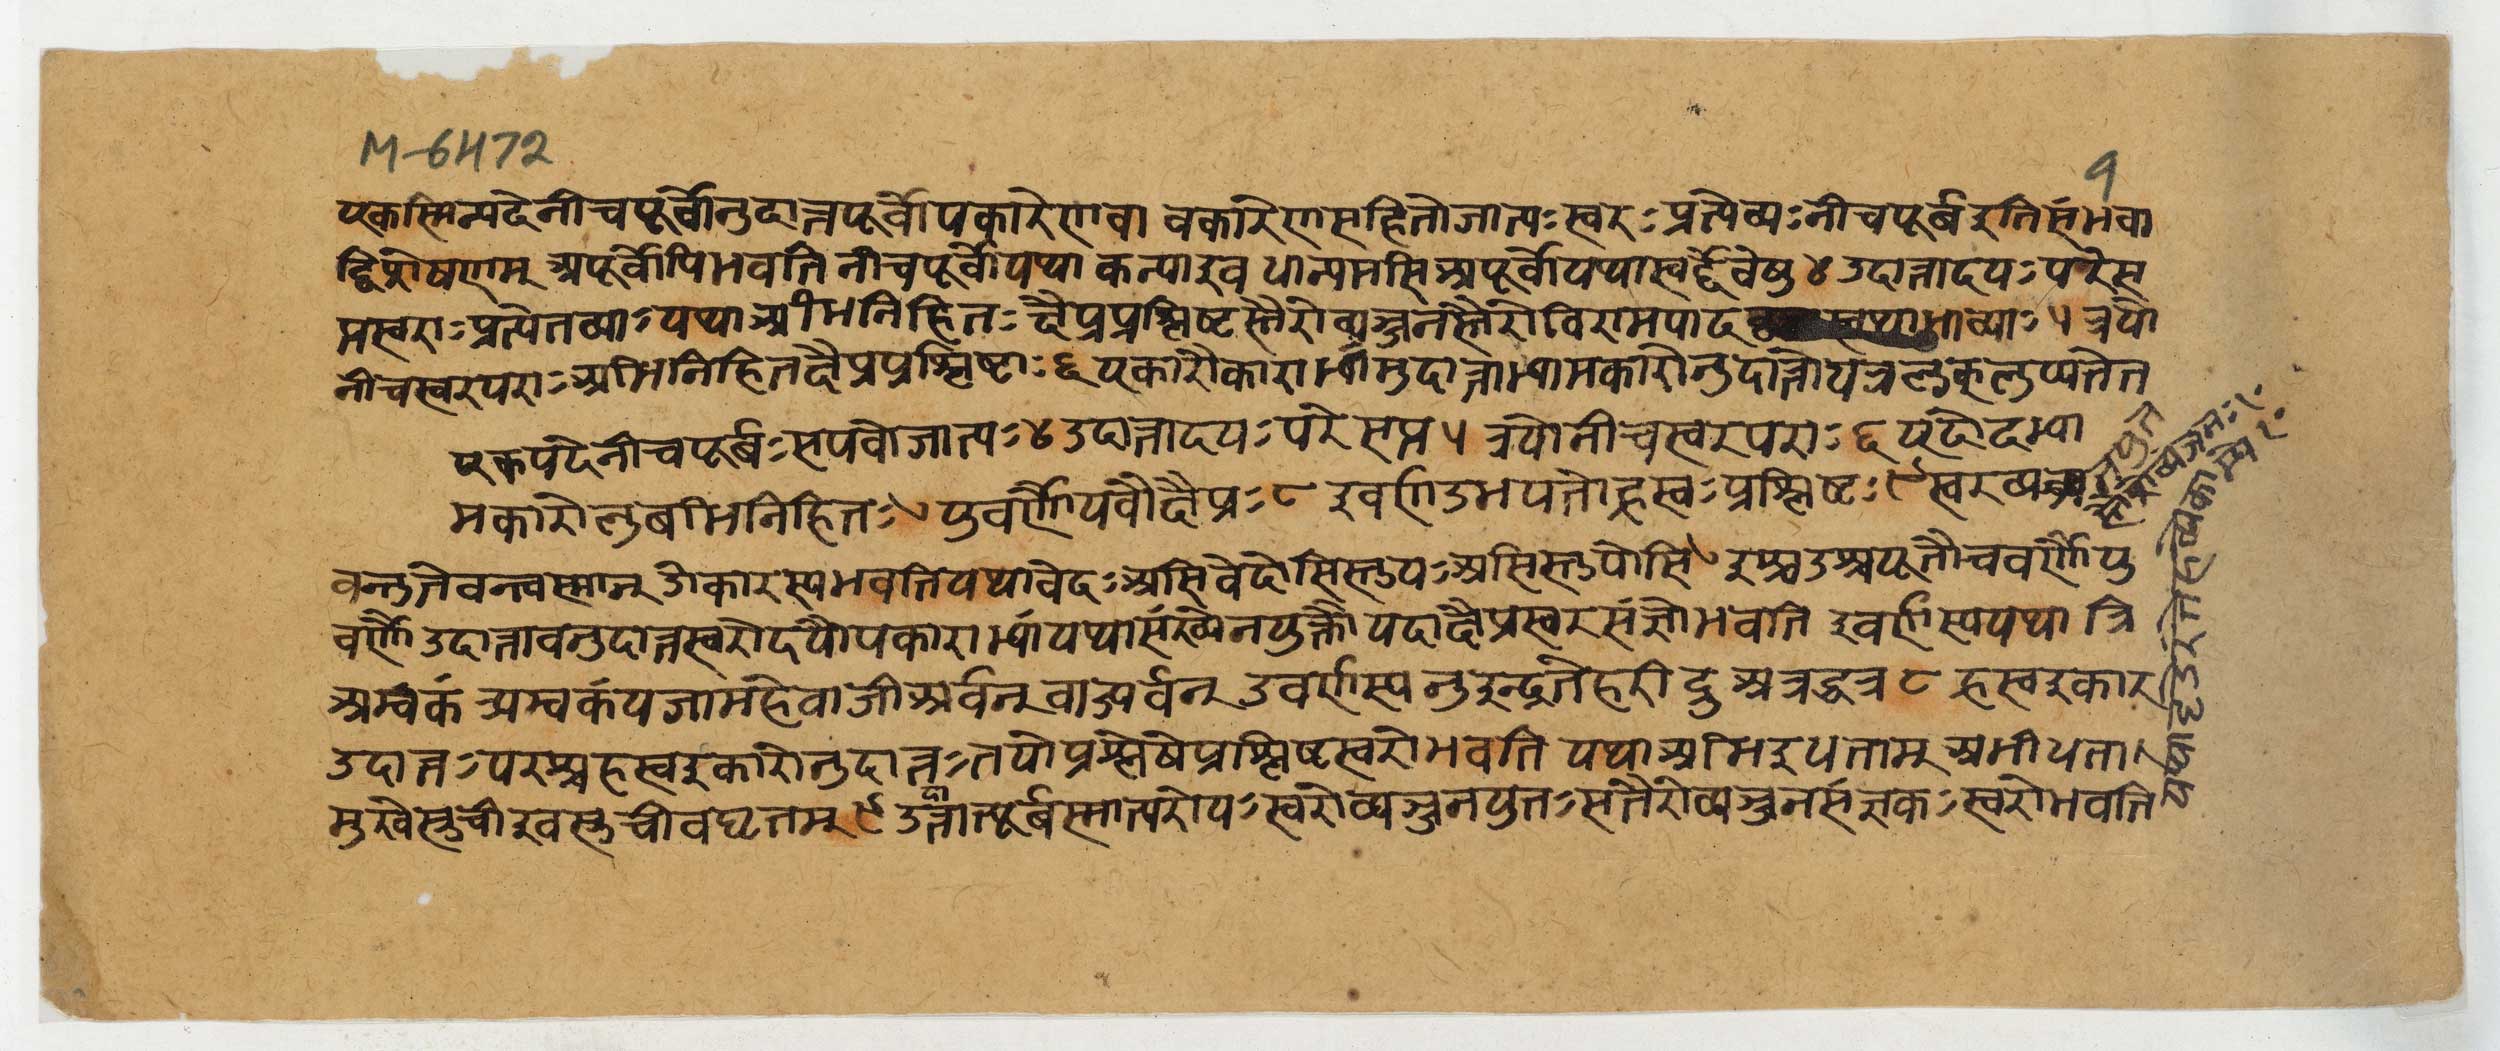 M-6472
9
एकस्मिन्पदेनीचपूर्वोनुदात्तपूर्वोयकारेणवा वकारेणसहितोजात्यः स्वरः प्रत्येव्यः नीचपूर्ब इतिसंभवा
द्विशेषणम् अपूर्वोपिभवति नीचपूर्वोयथा कन्या इव धान्यमसि अपूर्वोयथास्वर्द्देवेषु ४ उदात्तादयः परेस
प्तस्वराः प्रत्येतव्याः यथा अभिनिहितः क्षैप्रप्रश्लिष्टस्तैरोव्यञ्जनस्तैरोविरामपाद भाव्याः ५ त्रयो
नीचस्वरपराः अभिनिहितक्षैप्रप्रश्लिष्टाः ६ एकारौकाराभ्यामुदात्ताभ्यामकारोनुदात्तोयत्रलुक्लुप्यतेत
एकपदेनीचपूर्बः सयवोजात्यः ४ उदात्तादयः परे सप्त ५ त्रयोनीचस्वरपराः ६ एदोदभ्या
मकारोलुबभिनिहितः ७ युवर्णौयवौक्षैप्रः ८ इवर्ण उभयतोह्रस्वः प्रश्लिष्टः ९ स्वरोव्यञ्ज
वन्तुतेवन्त्वस्मान् ओकारस्यभवतियथावेदः असि वेदोसिस्तुपः असिस्तुपोसि ७ इश्च उश्च एतौचवर्णौयु
वर्णौ उदात्तावनुदात्तस्वरोदयौयकाराभ्यांयथासंख्येनयुक्तौ यदाक्षैप्रस्वरसंज्ञोभवति इवर्णस्ययथा त्रि
अम्बकं त्र्यम्बकंयजामहेवाजीअर्वन् वाज्यर्वन् उवर्णस्य नु इन्द्रतेहरी द्रु अन्नद्रुन्न ८ ह्रस्व इकार
उदात्तः परश्चह्रस्वइकारोनुदात्तः तयोप्रश्लेषेप्रश्लिष्टस्वरोभवति यथा अभिइधताम् अभीधता।
मुखेस्रुची इवस्रुचीवघृतम् ९ उदात्तात्पूर्बस्मात्परोयः स्वरोव्यञ्जनयुतः सतैरोव्यञ्जनसंज्ञकः स्वरोभवति